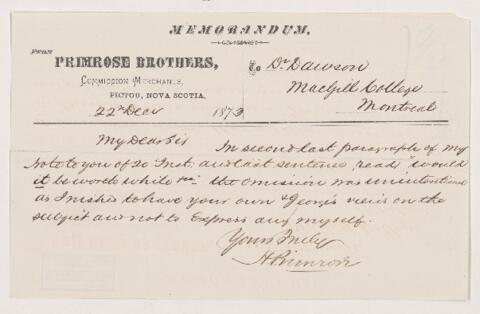 MEMORANDUM,
FROM
PRIMROSE BROTHERS,
COMMISSION MERCHANTS,
PICTOU, NOVA SCOTIA.
To Dr Dawson
MacGill College
Montreal
22nd Decr 1873
My Dear Sir In second last paragraph of my
Note to you of 20 Inst. and last sentence "read" "would
it be worth while &c" the omission was unintentional
as I wished to have your own & George's views on the
subject and not to Express any myself.
Yours Truly
H Primrose